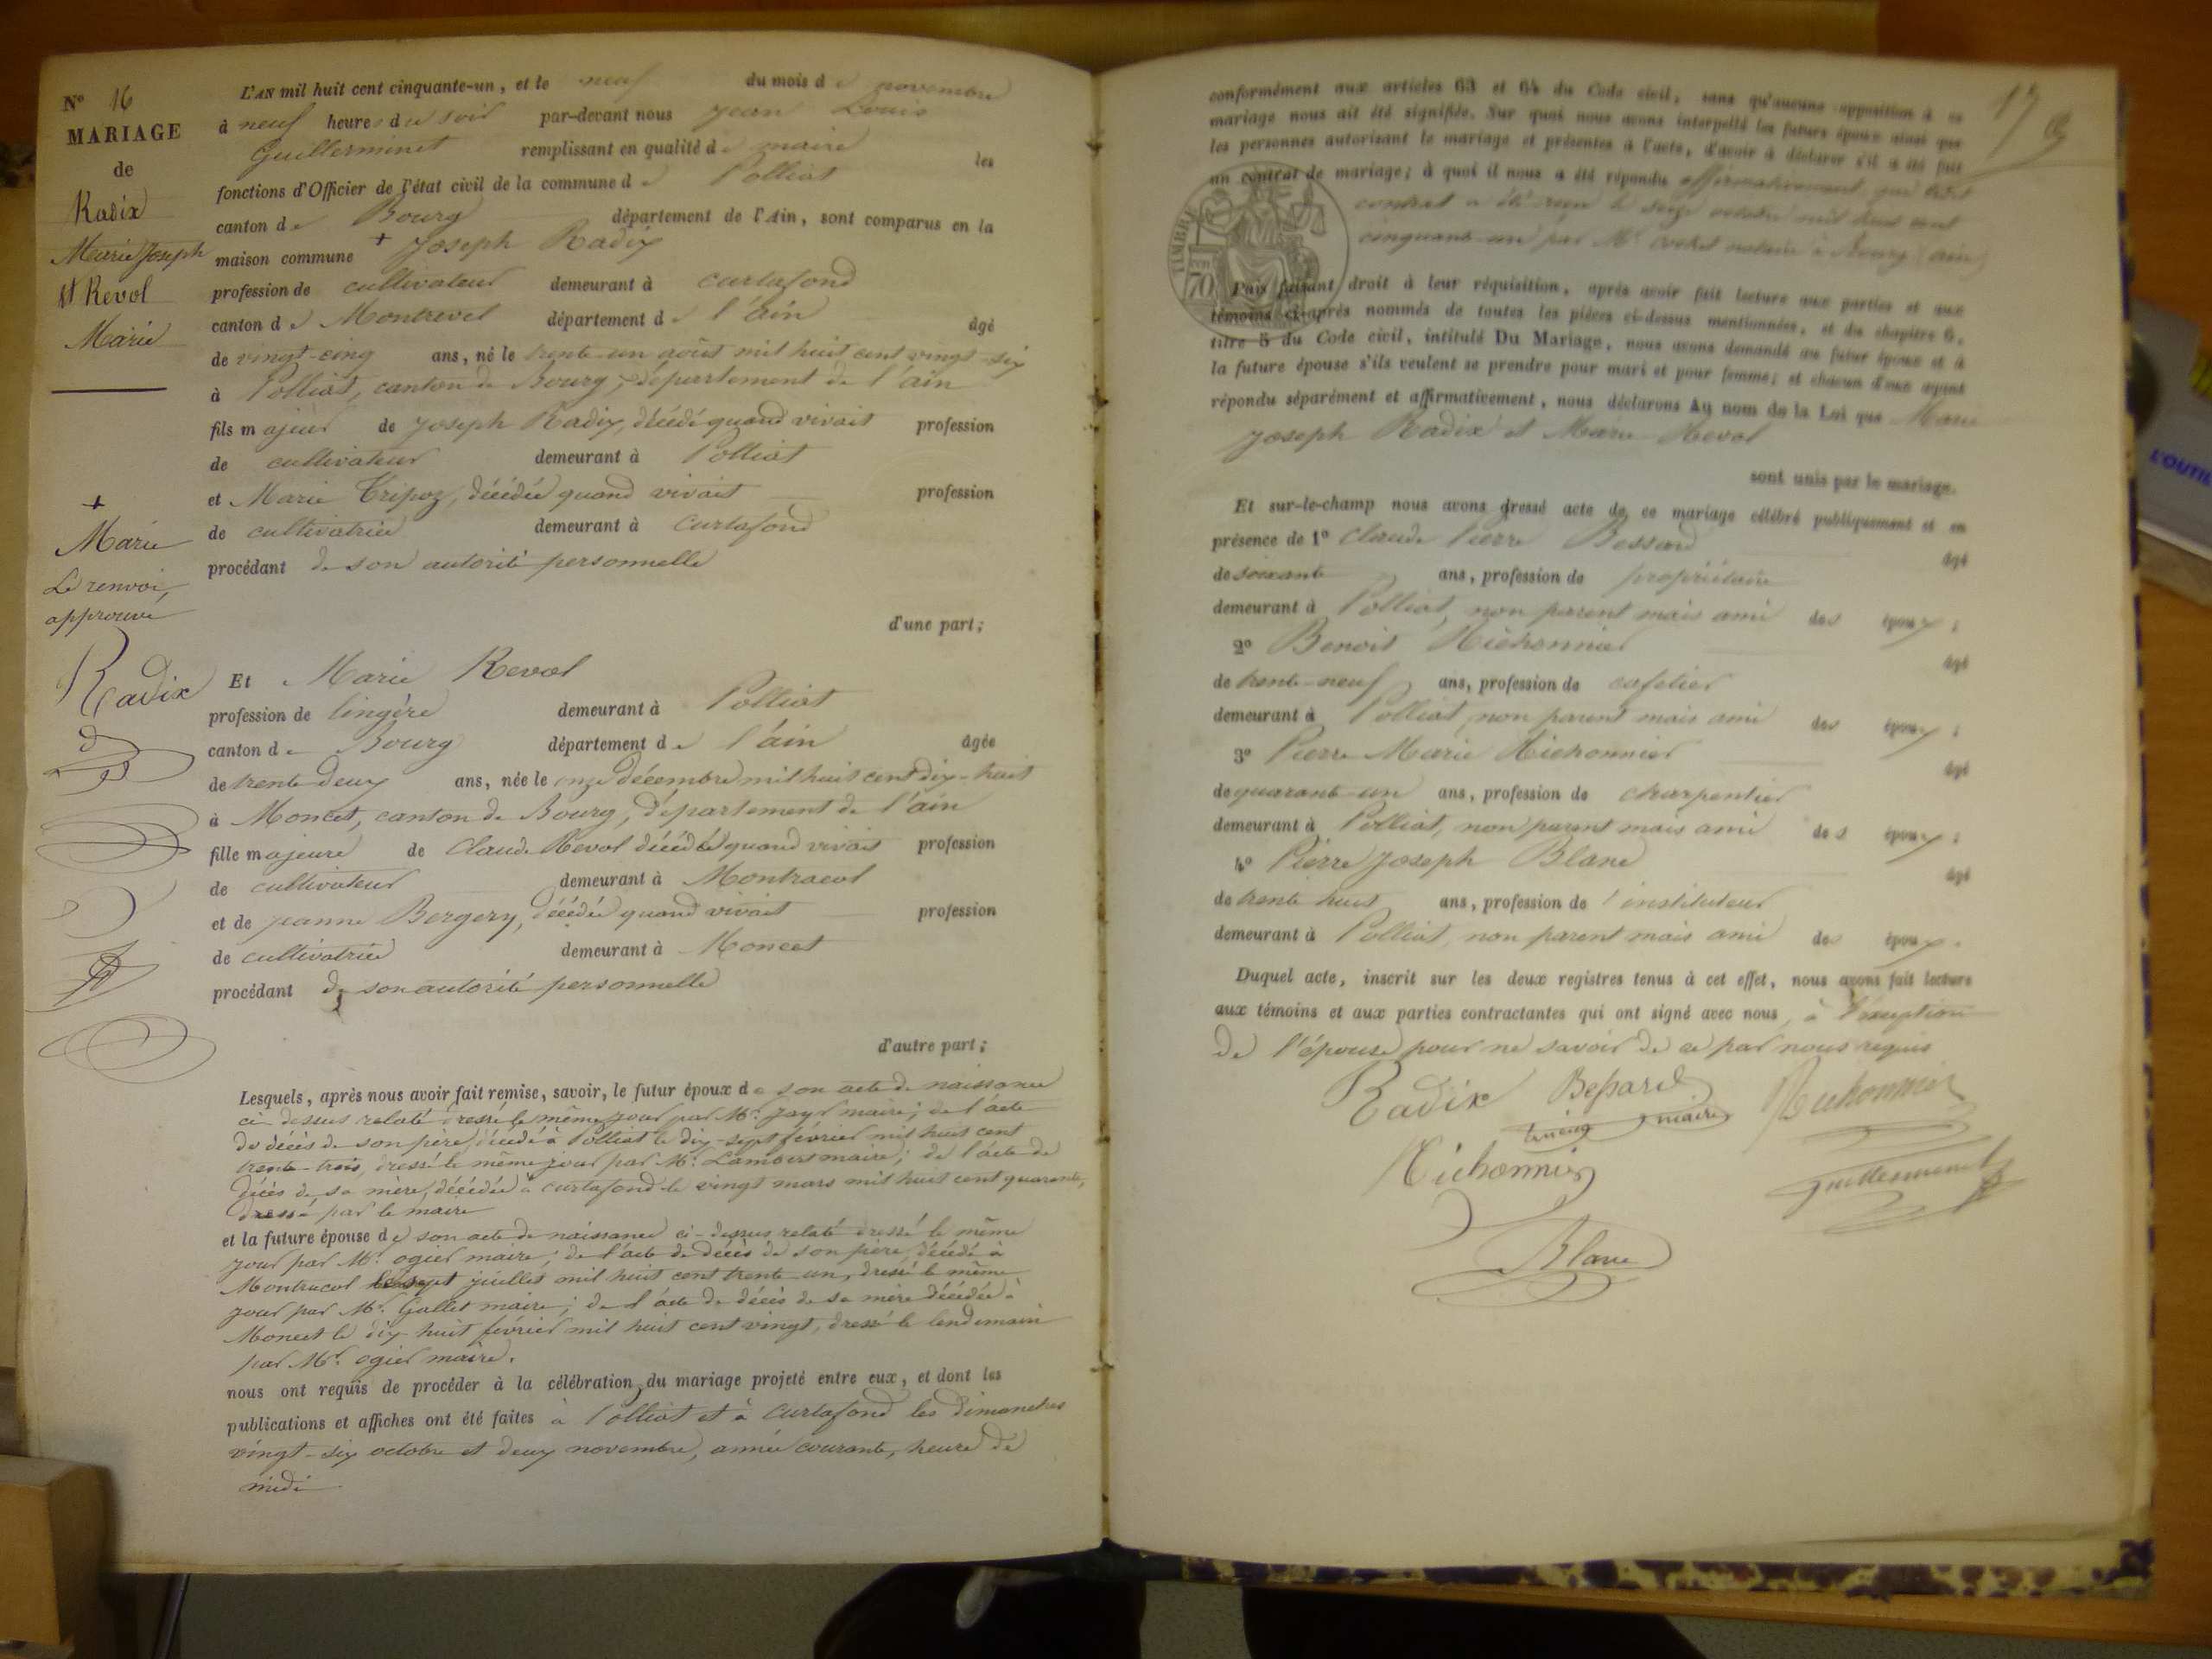 N° 16
MARIAGE
de
Radix
Marie Joseph
et Revol
Marie
+
Marie
Le renvoi,
approuvé
Radix
L'AN mil huit cent cinquante-un, et le neuf du mois de novembre
à neuf heures du soir par-devant nous Jean Louis
Guillerminet remplissant en qualité de maire les
fonctions d'Officier de l'état civil de la commune de Polliat
canton de Bourg département de l'Ain, sont comparus en la
maison commune + Joseph Radix
profession de cultivateur demeurant à Curtafond
canton de Montrevel département de l'ain âgé
de vingt-cinq ans, né le trente-un août mil huit cent vingt-six
à Polliat, canton de Bourg, département de l'ain
fils majeur de Joseph Radix, décédé quand vivait profession
de cultivateur demeurant à Polliat
et Marie Tripoz, décédée quand vivait profession
de cultivatrice demeurant à Curtafond
procédant de son autorité personnelle
d'une part;
Et Marie Revol
profession de lingère demeurant à Polliat
canton de Bourg département de l'ain âgée
de trente deux ans, née le onze décembre mil huit cent dix-huit
à Moncet, canton de Bourg, département de l'ain
fille majeure de Claude Revol décédé quand vivait profession
de cultivateur demeurant à Montracol
et de Jeanne Bergery, décédée quand vivait profession
de cultivatrice demeurant à Moncet
procédant de son autorité personnelle
d'autre part;
Lesquels, après nous avoir fait remise, savoir, le futur époux de son acte de naissance
ci-dessus relaté dressé le même jour par Mr. Jayr maire; de l'acte
de décès de son père, décédé à Polliat le dix-sept février mil huit cent
trente-trois, dressé le même jour par Mr. Lambert maire; de l'acte de
décès de sa mère, décédée à Curtafond le vingt mars mil huit cent quarante,
dressé par le maire
et la future épouse de son acte de naissance ci-dessus relaté dressé le même
jour par Mr. ogier maire; de l'acte de décès de son père, décédé à
Montracol le sept juillet mil huit cent trente-un, dressé le même
jour par Mr. Gallet maire; de l'acte de décès de sa mère décédée à
Moncet le dix-huit février mil huit cent vingt, dressé le lendemain
par Mr. ogier maire.
nous ont requis de procéder à la célébration du mariage projeté entre eux, et dont les
publications et affiches ont été faites à Polliat et à Curtafond les dimanches
vingt-six octobre et deux novembre, année courante, heure de
midi
17
conformément aux articles 63 et 64 du Code civil, sans qu'aucune opposition à ce
mariage nous ait été signifiée. Sur quoi nous avons interpellé les futurs époux ainsi que
les personnes autorisant le mariage et présentes à l'acte, d'avoir à déclarer s'il a été fait
un contrat de mariage; à quoi il nous a été répondu affirmativement, que ledit
contrat a été reçu le seize octobre mil huit cent
cinquante-un par Mr notaire à Bourg (ain)
TIMBRE
70
Puis faisant droit à leur réquisition, après avoir fait lecture aux parties et aux
témoins ci-après nommés de toutes les pièces ci-dessus mentionnées, et du chapitre 6,
titre 5 du Code civil, intitulé Du Mariage, nous avons demandé au futur époux et à
la future épouse s'ils veulent se prendre pour mari et pour femme; et chacun d'eux ayant
répondu séparément et affirmativement, nous déclarons Au nom de la Loi que Marie
Joseph Radix et Marie Revol
sont unis par le mariage.
Et sur-le-champ nous avons dressé acte de ce mariage célébré publiquement et en
présence de 1° Claude Pierre Bessard âgé
de soixante ans, profession de propriétaire
demeurant à Polliat, non parent mais ami des époux;
2° Benoit Nichonnier âgé
de trente-neuf ans, profession de cafetier
demeurant à Polliat, non parent mais ami des époux;
3° Pierre Marie Nichonnier âgé
de quarante-un ans, profession de charpentier
demeurant à Polliat, non parent mais ami des époux;
4° Pierre Joseph Blanc âgé
de trente huit ans, profession d'instituteur
demeurant à Polliat, non parent mais ami des époux.
Duquel acte, inscrit sur les deux registres tenus à cet effet, nous avons fait lecture
aux témoins et aux parties contractantes qui ont signé avec nous, à l'exception
de l'épouse pour ne savoir de ce par nous requis
Radix Bessard Nichonnier
maire
Nichonnier Guillerminet
Blanc
L'OUTIL